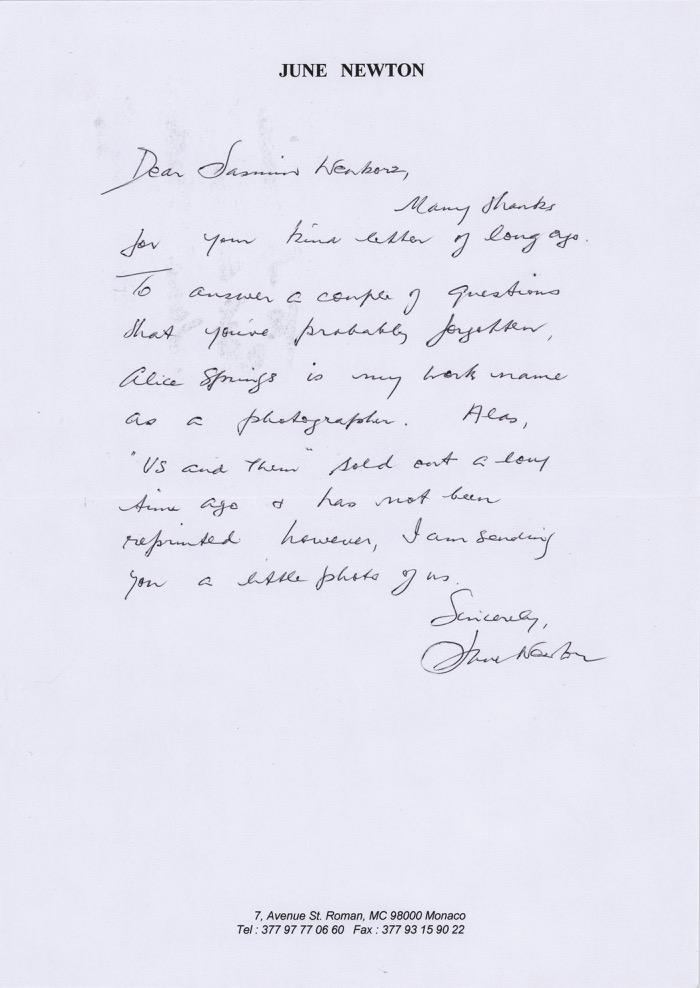 JUNE NEWTON
Dear
Many thanks
for your kind letter of long ago.
To answer a couple of questions
that you've probably forgotten,
Alice Springs is my work name
as a photographer. Alas,
"US and Them" sold out a long
time ago & has not been
reprinted however, I am sending
you a little photo of us.
Sincerely,
June Newton
7, Avenue St. Roman, MC 98000 Monaco
Tel : 377 97 77 06 60 Fax : 377 93 15 90 22